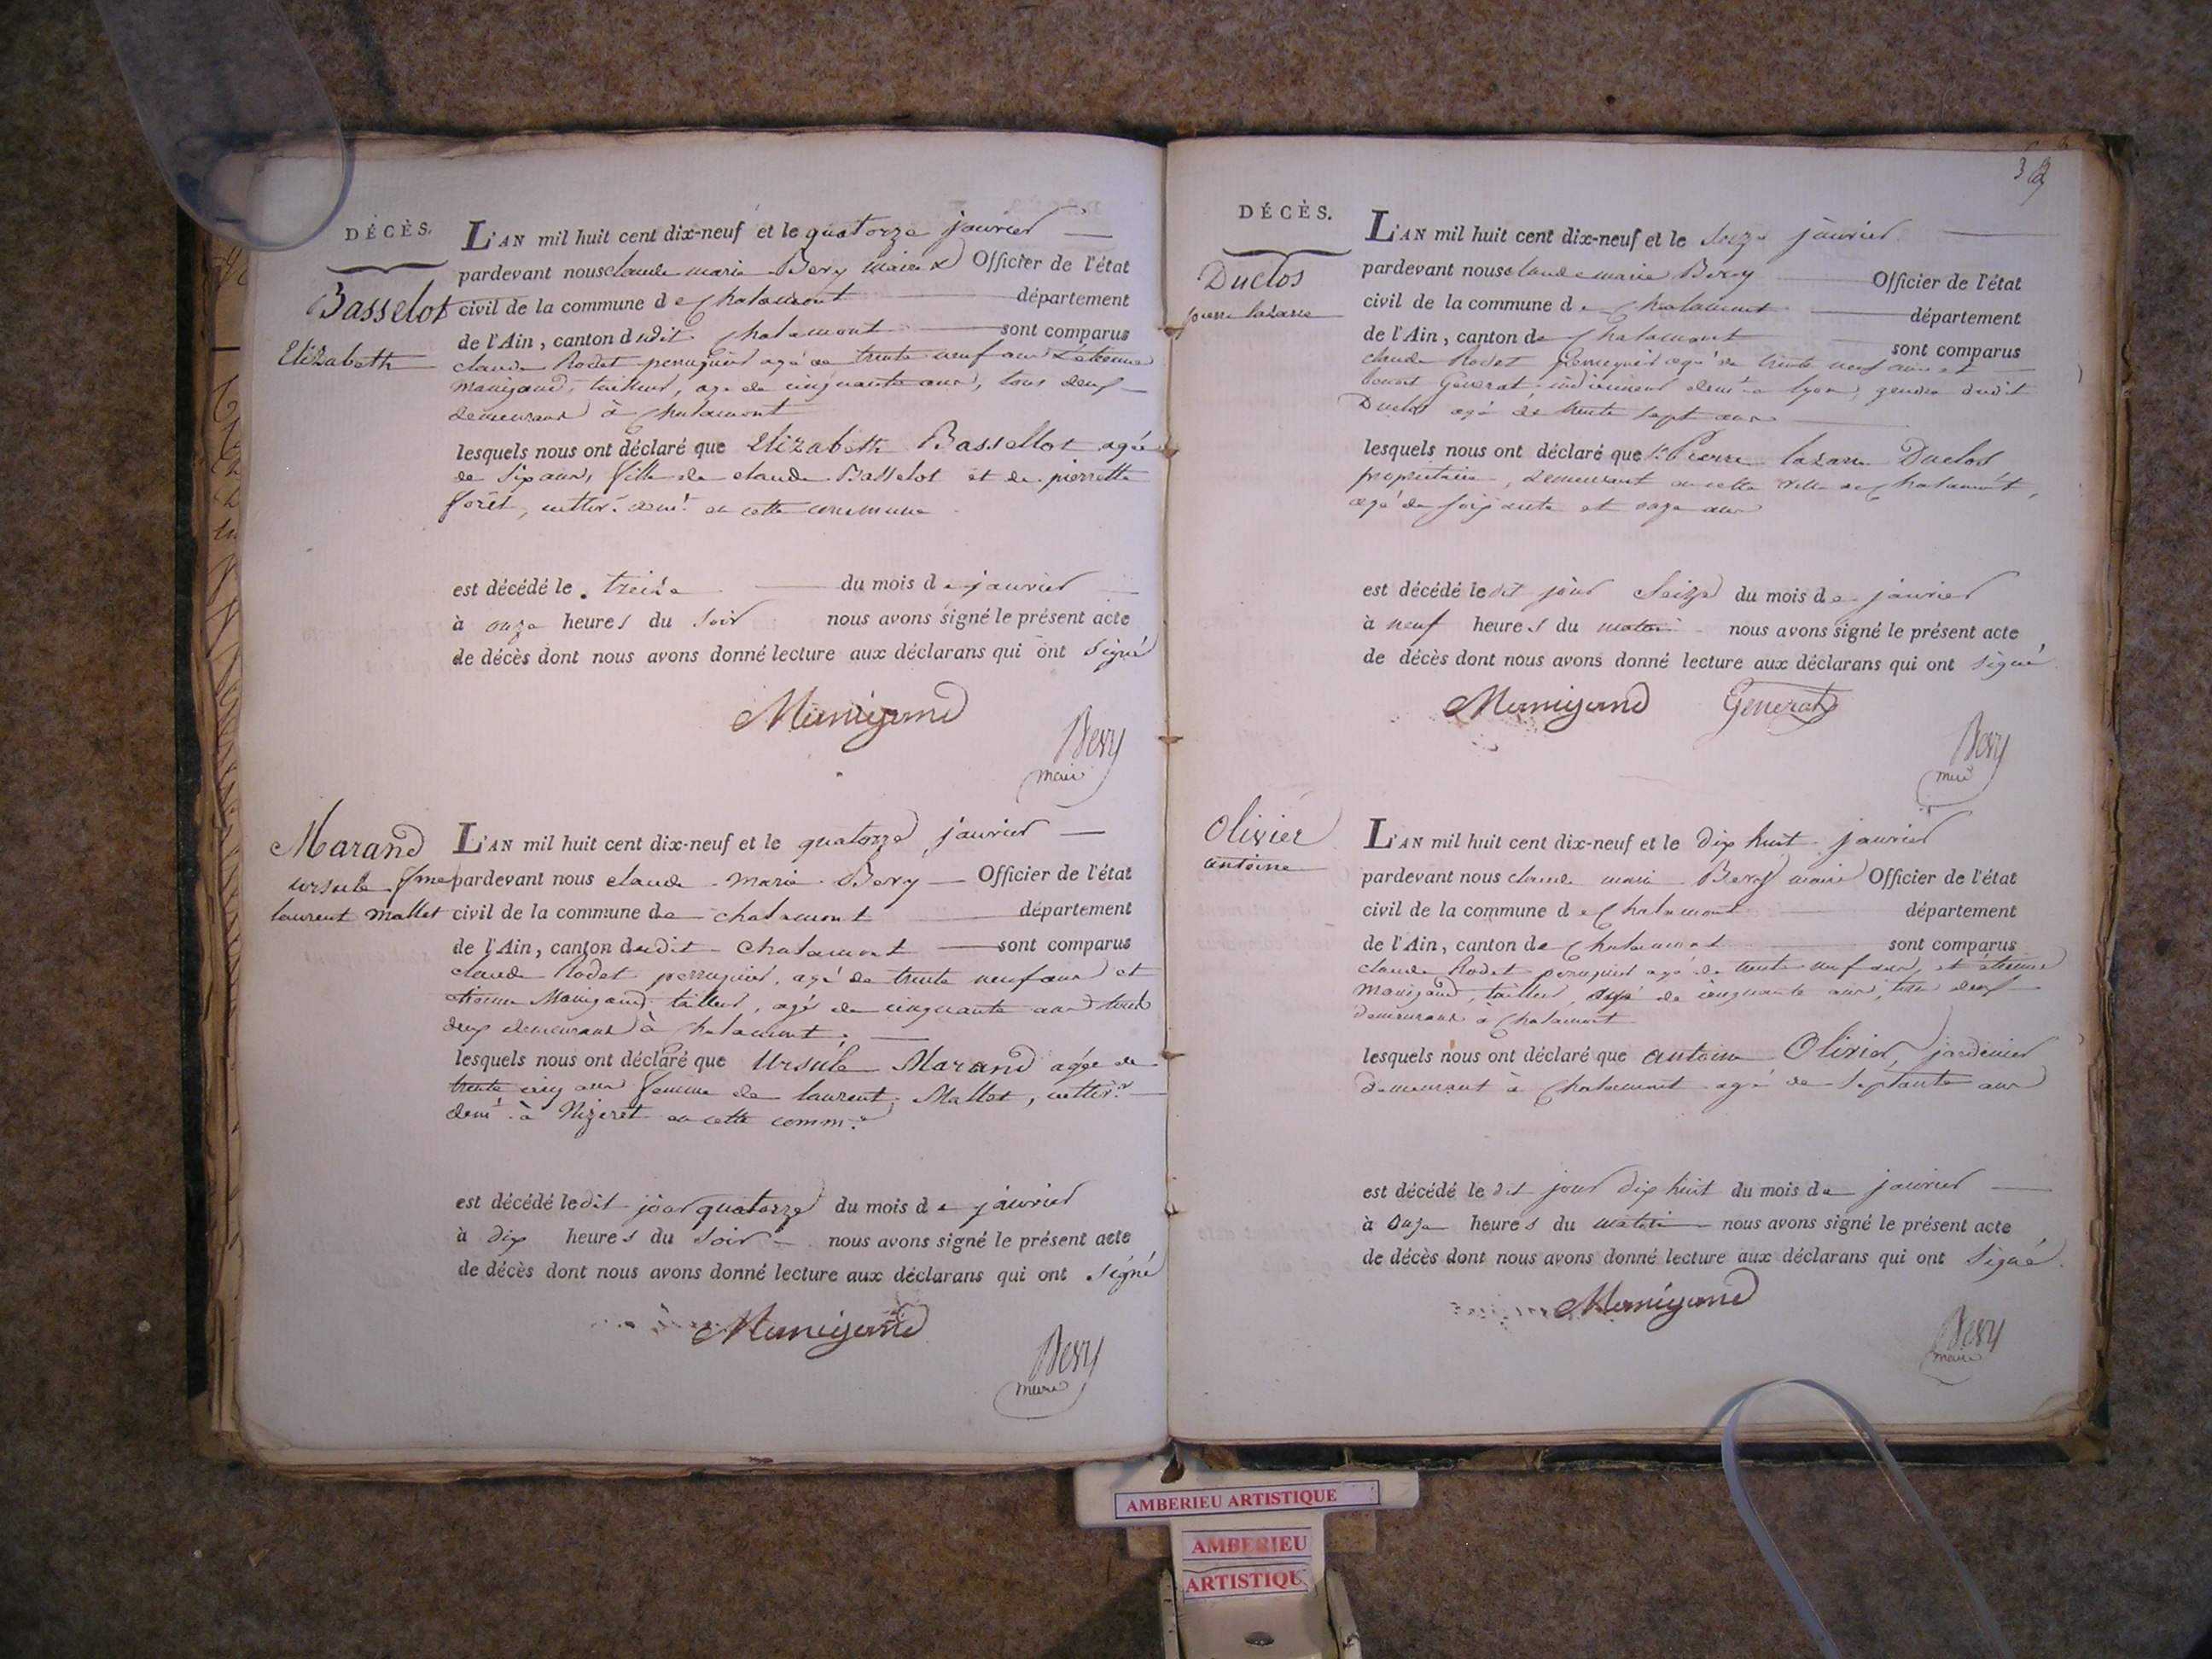 DÉCÈS.
Basselot
Elizabeth
L'AN mil huit cent dix-neuf et le quatorze janvier
pardevant nous claude marie Bevy maire Officier de l'état
civil de la commune de Chalamont département
de l'Ain, canton dudit Chalamont sont comparus
claude Rodet perruquier agé de trente neuf ans et etienne
Manigand, tailleur, agé de cinquante ans, tous deux
demeurant à Chalamont
lesquels nous ont déclaré que Elizabeth Bassellot agée
de six ans, fille de claude Basselot et de pierrette
forêt, cultivr. demt. en cette commune
est décédé le treize du mois de janvier
à onze heures du soir nous avons signé le présent acte
de décès dont nous avons donné lecture aux déclarans qui ont signé
Manigand
Bevy
maire
Marand
ursule fme
laurent Mallet
L'AN mil huit cent dix-neuf et le quatorze janvier
pardevant nous claude marie Bevy Officier de l'état
civil de la commune de chalamont département
de l'Ain, canton dudit chalamont sont comparus
claude Rodet perruquier, agé de trente neuf ans et
etienne Manigand tailleur, agé de cinquante ans tous
deux demeurant à Chalamont,
lesquels nous ont déclaré que Ursule Marand agée de
trente cinq ans femme de laurent Mallet, cultivr.
demt. à Nizeret en cette comm.e
est décédé ledit jour quatorze du mois de janvier
à dix heures du soir nous avons signé le présent acte
de décès dont nous avons donné lecture aux déclarans qui ont signé
Manigand
Bevy
maire
DÉCÈS.
Duclos
pierre lazare
L'AN mil huit cent dix-neuf et le seize janvier
pardevant nous claude marie Bevy Officier de l'état
civil de la commune de Chalamont département
de l'Ain, canton de Chalamont sont comparus
claude Rodet perruquier agé de trente neuf ans et
benoit Generat demt a lyon, gendre dudit
Duclos agé de trente sept ans
lesquels nous ont déclaré que Sr. Pierre lazare Duclos
propriétaire, demeurant en cette ville de Chalamont,
agé de soixante et onze ans
est décédé ledit jour seize du mois de janvier
à neuf heures du matin nous avons signé le présent acte
de décès dont nous avons donné lecture aux déclarans qui ont signé
Manigand Generat
Bevy
maire
Olivier
antoine
L'AN mil huit cent dix-neuf et le dix huit janvier
pardevant nous claude marie Bevy maire Officier de l'état
civil de la commune de Chalamont département
de l'Ain, canton de Chalamont sont comparus
claude Rodet perruquier agé de trente neuf ans, et étienne
Manigand, tailleur, agé de cinquante ans, tous deux
demeurant à Chalamont
lesquels nous ont déclaré que antoine Olivier, jardinier
demeurant à Chalamont agé de septante ans
est décédé ledit jour dix huit du mois de janvier
à onze heures du matin nous avons signé le présent acte
de décès dont nous avons donné lecture aux déclarans qui ont signé.
Manigand
Bevy
maire
AMBERIEU ARTISTIQUE
AMBERIEU
ARTISTIQU